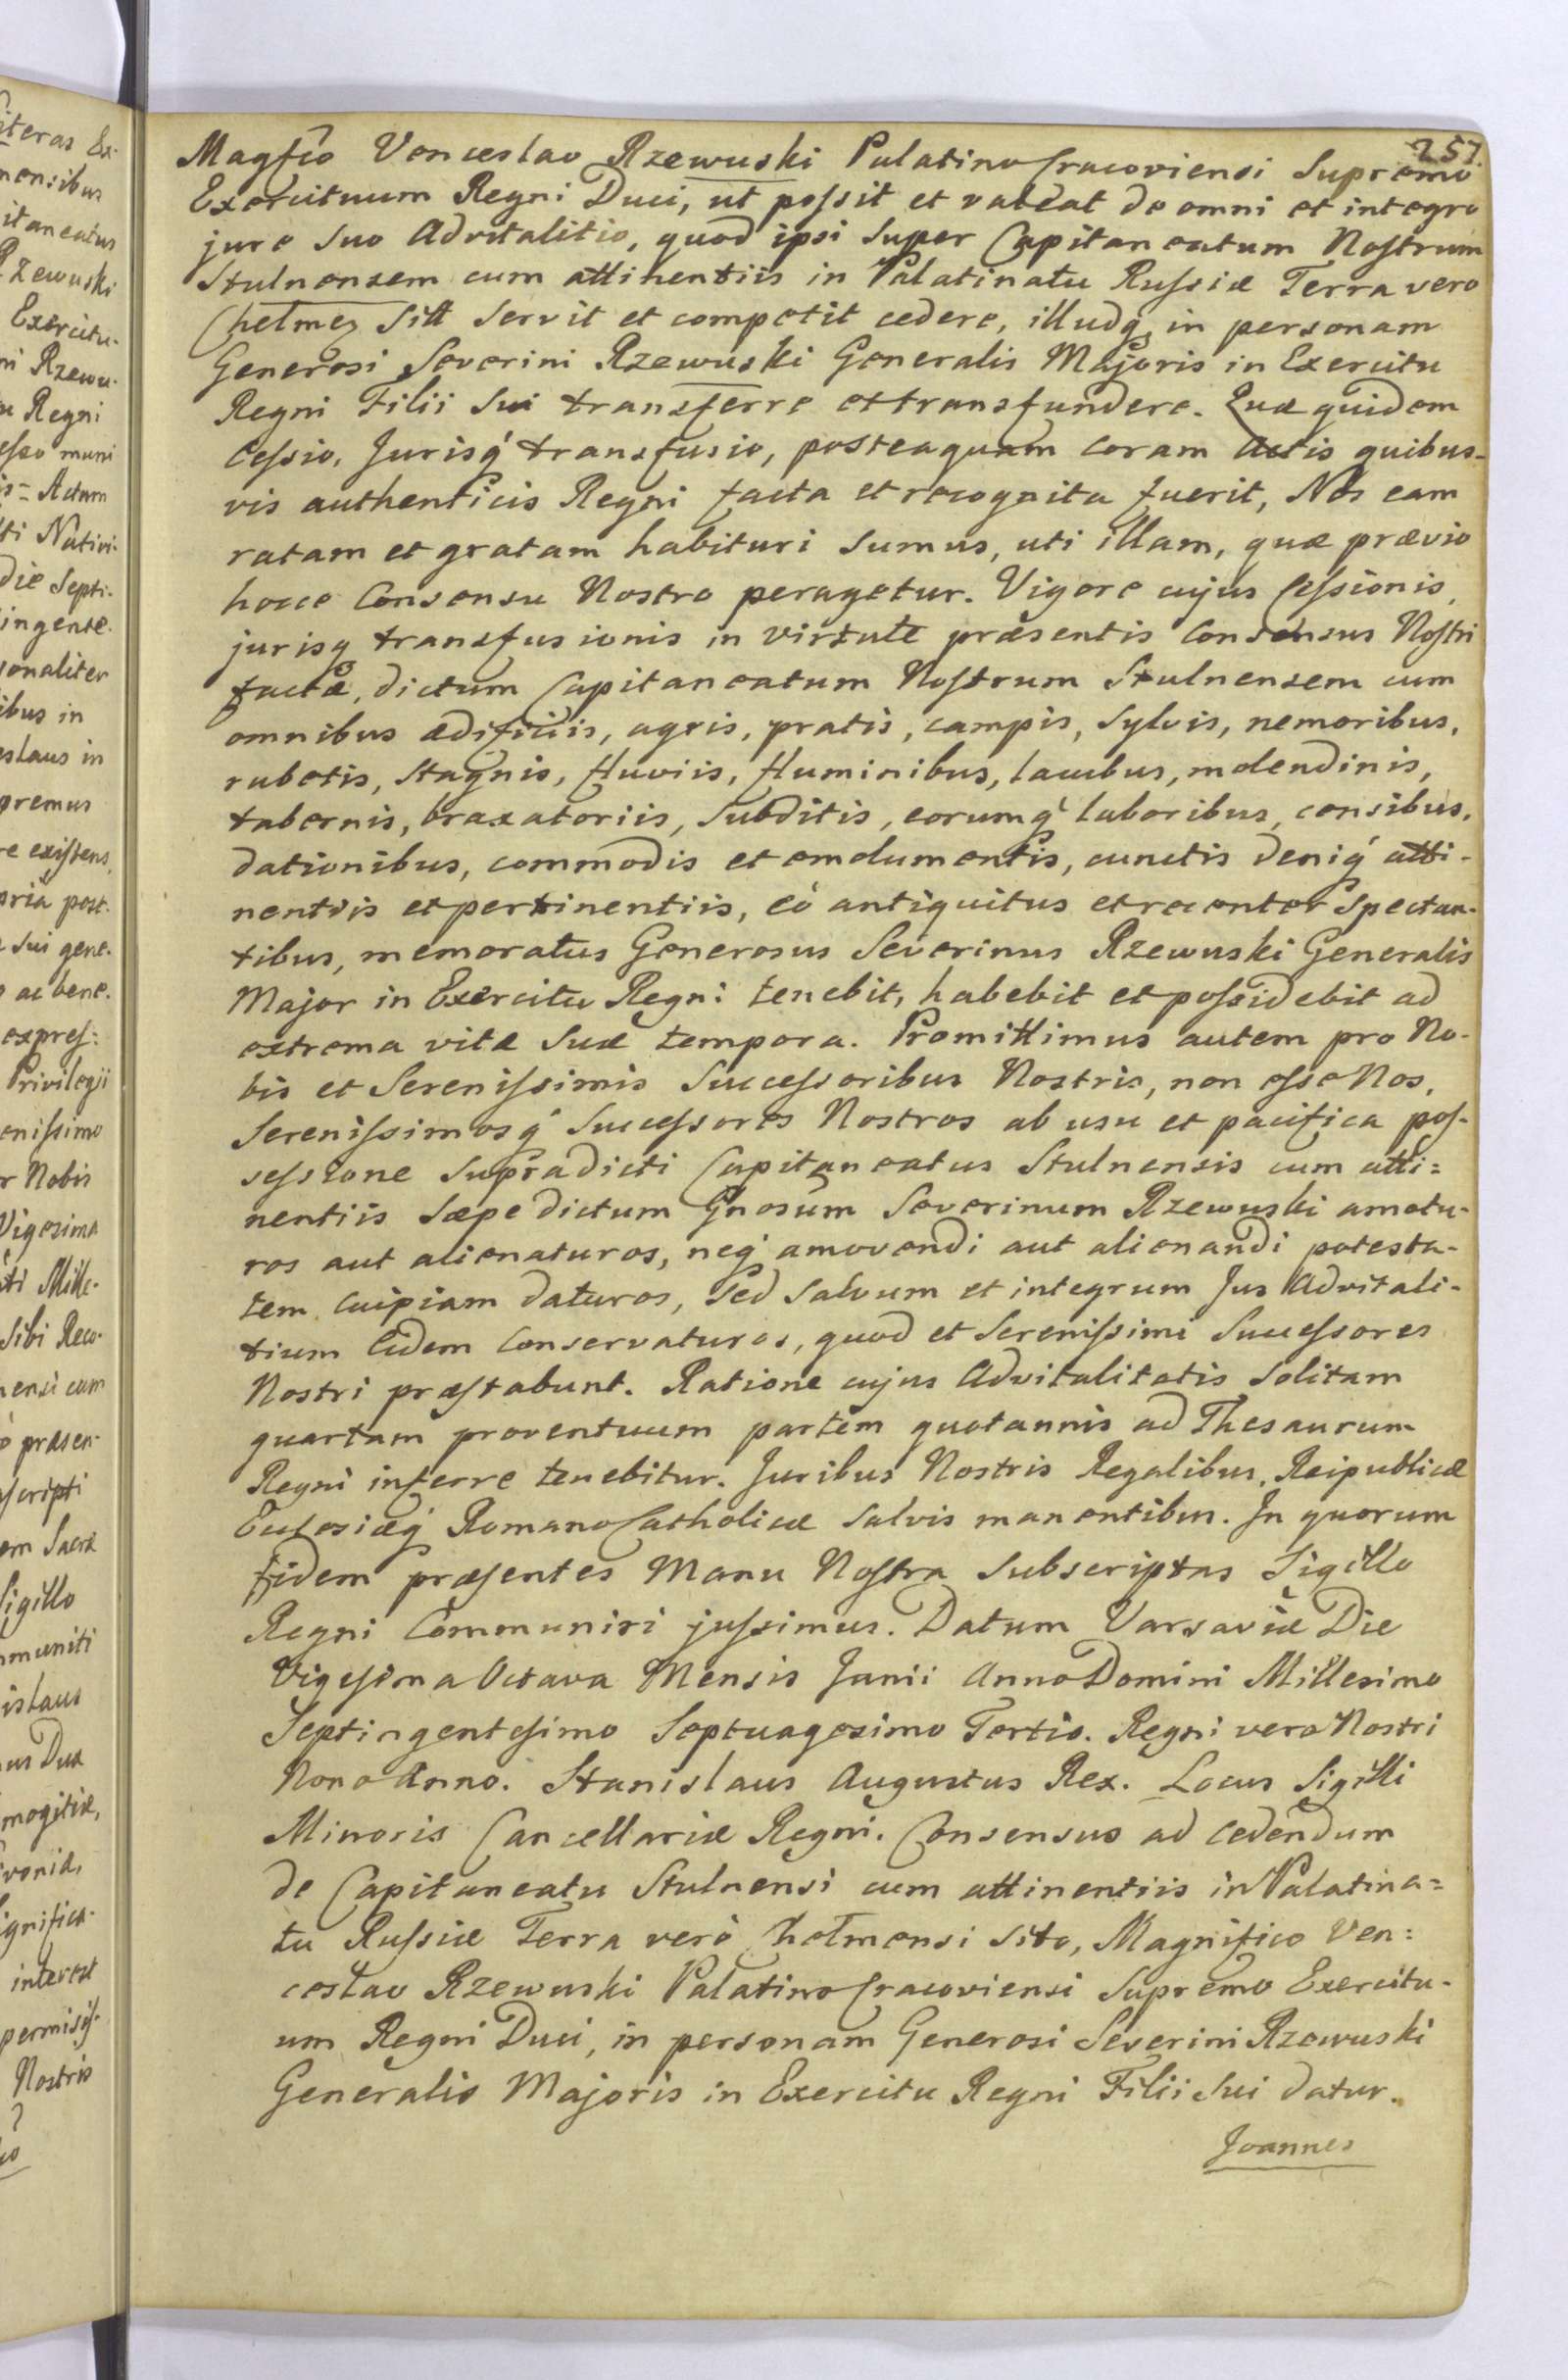 257.
Magfco Venceslao Rzewuski Palatino Cracoviensi Supremo
Exercituum Regni Duci, ut possit et valeat de omni et integro
jure suo Advitalitio, quod ipsi super Capitaneatum Nostrum
Stulnensem cum attinentiis in Palatinatu Russiæ Terra vero
Chelmeṇ Sitt servit et competit cedere, illudq́, in personam
Generosi Severini Rzewuski Generalis Majoris in Exercitu
Regni Filii Sui transferre et transfundere. Quæ quidem
Cessio, Jurisq́ transfusio, posteaquam coram Actis quibus-
vis authenticis Regni facta et recognita fuerit, Nos eam
ratam et gratam habituri sumus, uti illam, quæ prævio
hocce Consensu Nostro peragetur. Vigore cujus Cessionis,
jurisq transfusionis in virtute præsentis Consensus Nostri
factæ, dictum Capitaneatum Nostrum Stulnensem cum
omnibus ædificiis, agris, pratis, campis, Sylvis, nemoribus,
rubetis, Stagnis, fluviis, fluminibus, lacubus, molendinis,
tabernis, braxatoriis, Subditis, eorumq́ laboribus, censibus,
dationibus, commodis et emolumentis, cunctis deniq́ atti-
nentiis et pertinentiis, eò antiquitus et recenter Spectan-
tibus, memoratus Generosus Severinus Rzewuski Generalis
Major in Exercitu Regni tenebit, habebit et possidebit ad
extrema vitæ Suæ tempora. Promittimus autem pro No-
bis et Serenissimis Successoribus Nostris, non esse Nos,
Serenissimosq́ Successores Nostros ab usu et pacifica pos-
sessione Supradicti Capitaneatus Stulnensis cum atti=
nentiis Sæpe dictum Gnosum Severinum Rzewuski amotu-
ros aut alienaturos, neq́ amovendi aut alienandi potesta-
tem cuipiam daturos, Sed Salvum et integrum Jus Advitali-
tium Eidem Conservaturos, quod et Serenissimi Successores
Nostri præstabunt. Ratione cujus Advitalitatis Solitam
quartam proventuum partem quotannis ad Thesaurum
Regni inferre tenebitur. Juribus Nostris Regalibus, Reipublicæ
Ecclesiæq́ Romano Catholicæ salvis manentibus. In quorum
fidem præsentes Manu Nostra Subscriptas Sigillo
Regni Communiri jussimus. Datum Varsaviæ Die
Vigesima Octava Mensis Junii Anno Domini Millesimo
Septingentesimo Septuagesimo Tertio. Regni vero Nostri
Nono Anno. Stanislaus Augustus Rex. Locus Sigilli
Minoris Cancellariæ Regni. Consensus ad cedendum
de Capitaneatu Stulnensi cum attinentiis in Palatina=
tu Russiæ Terra verò Chelmensi sito, Magnifico Ven=
ceslao Rzewuski Palatino Cracoviensi Supremo Exercitu-
um Regni Duci, in personam Generosi Severini Rzewuski
Generalis Majoris in Exercitu Regni Filii Sui datur.
Joannes